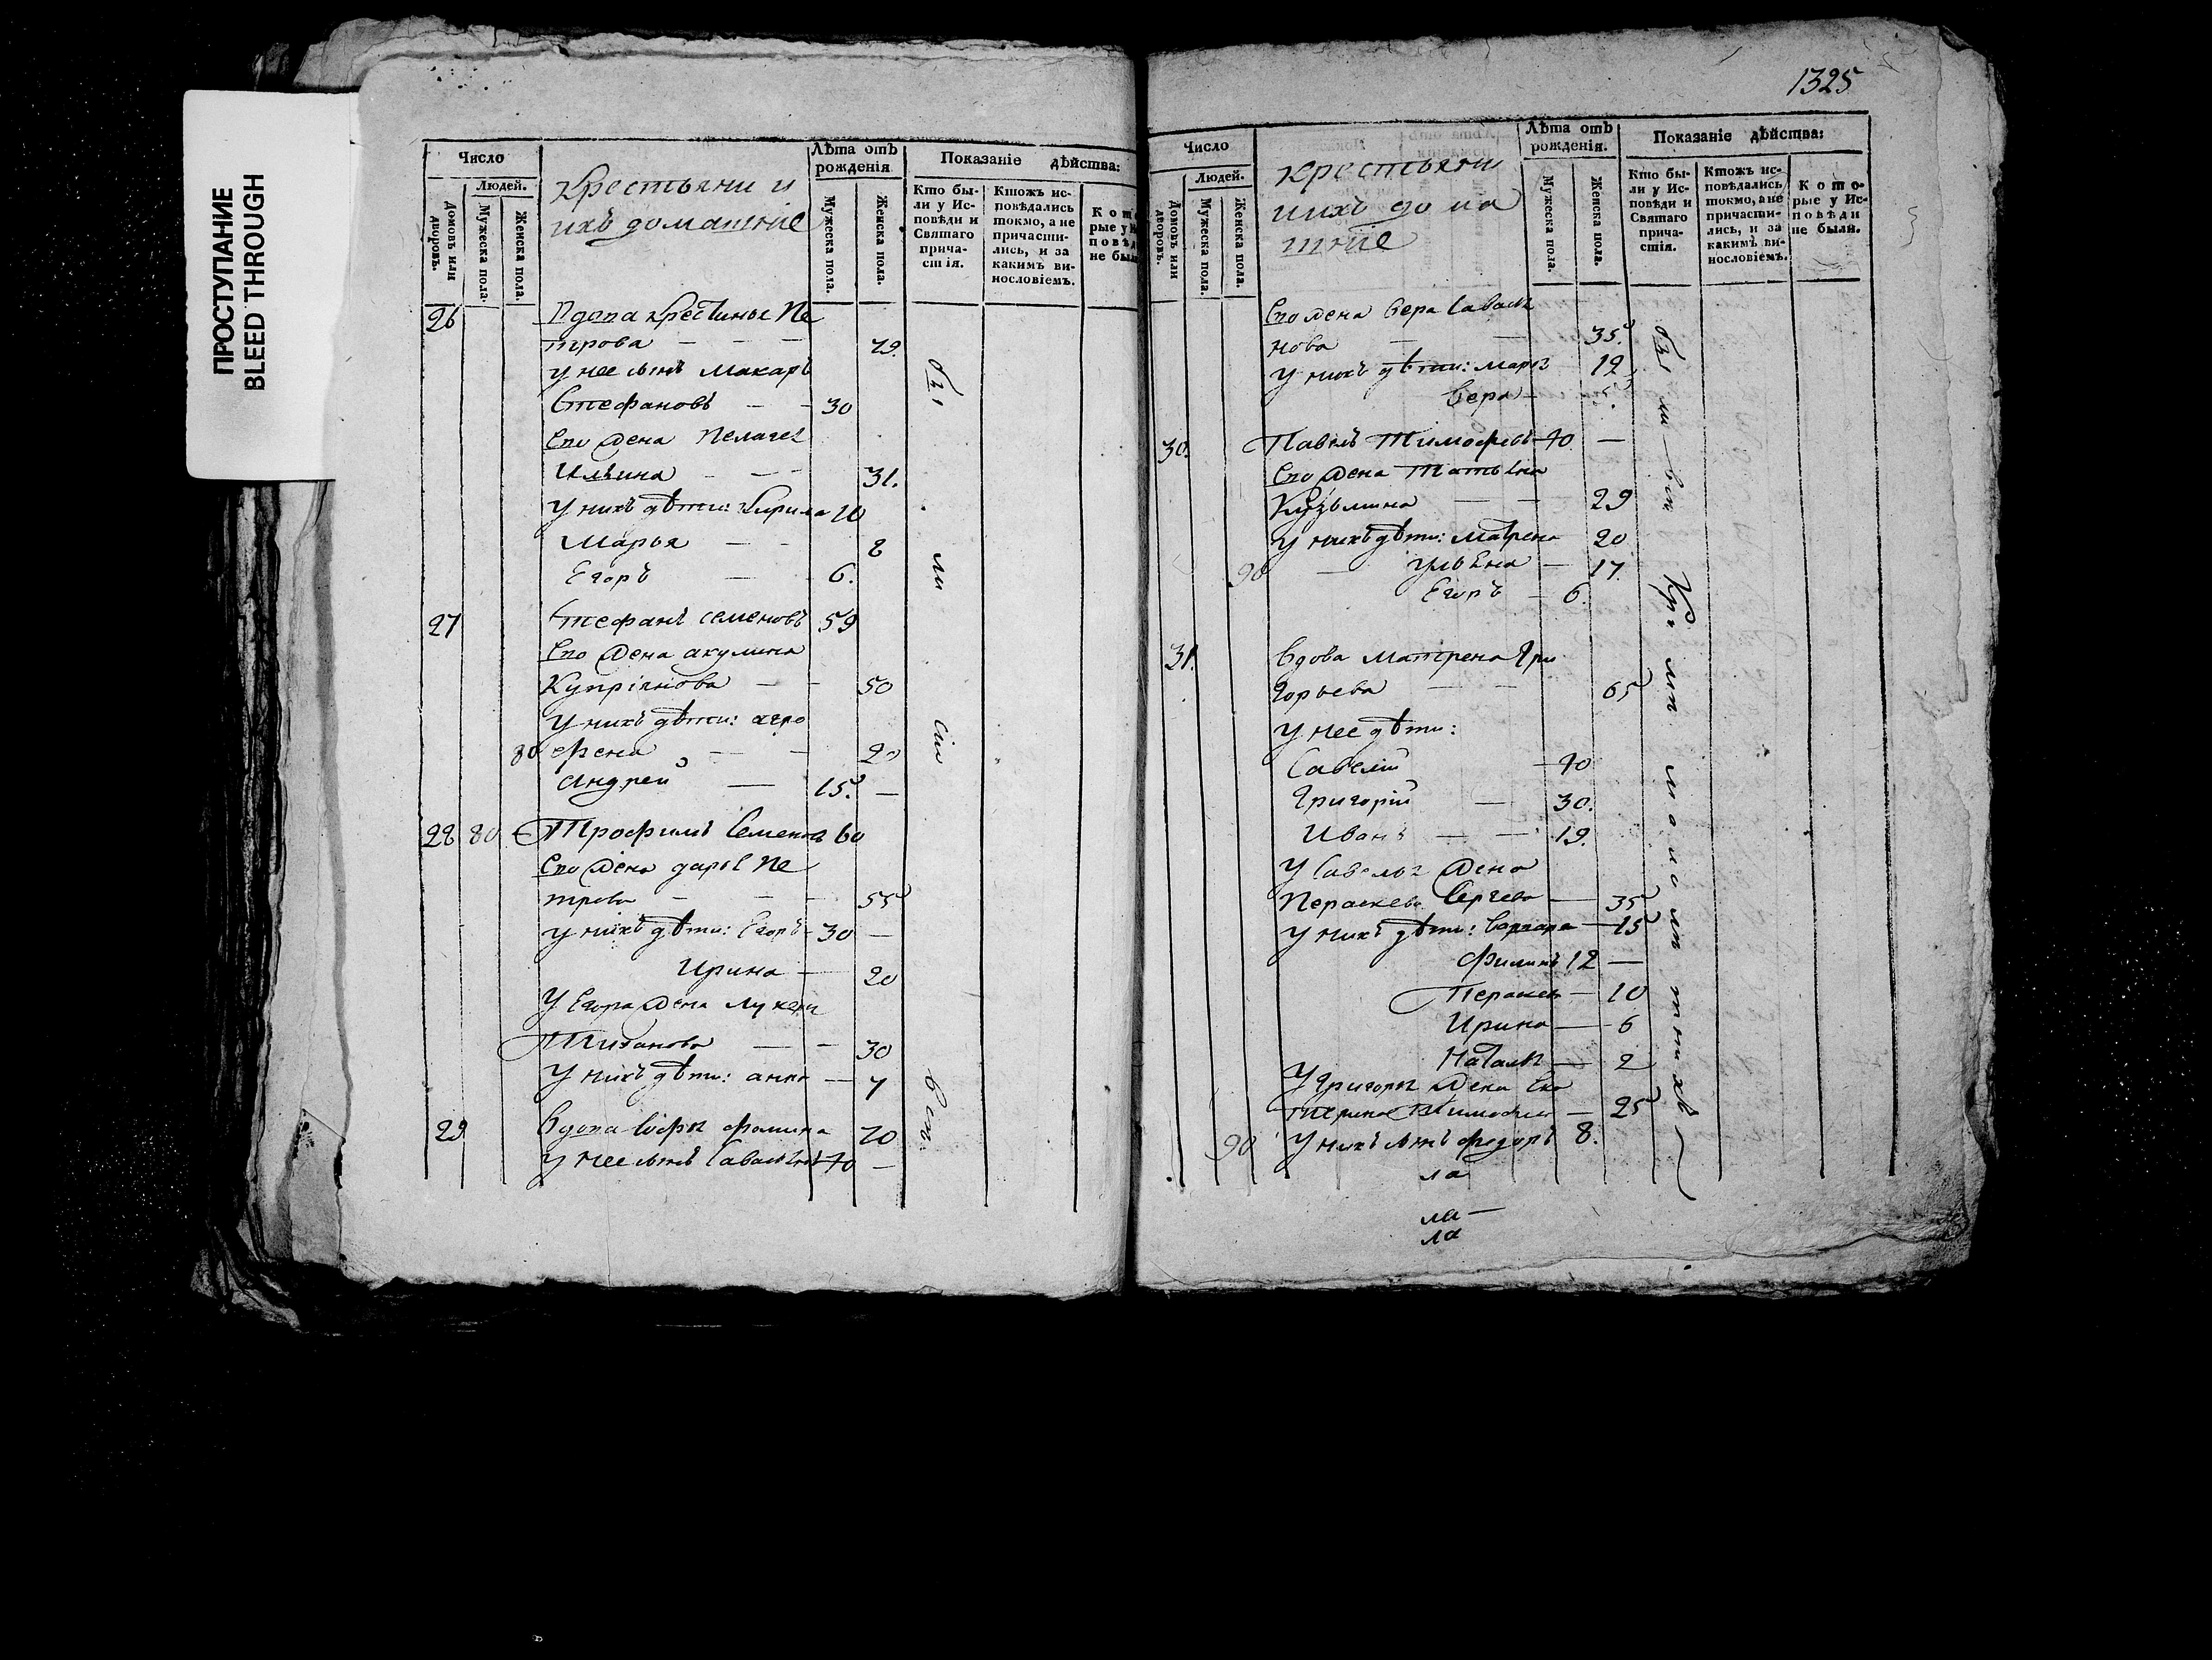 ПРОСТУПАНИЕ
BLEED THROUGH
Число
Людей.
Домовъ или дворовъ.
Мужеска пола.
Женска пола.
Крестьяни и
ихъ домашние
Лѣта отъ рожденія
Мужеска пола.
Женска пола.
Показаніе дѣйства:
Кто бы-
ли у Ис-
повѣди и
Святаго
прича-
стія.
Ктожъ ис-
повѣдались
токмо, а не
причасти-
лись, и за
какимъ ви-
нословіемъ.
26 Вдова крестинья Пе
трова — — — 79.
у нее сынъ Макаръ
Стефановъ — — 30
Его жена Пелагея
Ильина — — — 31.
У нихъ дѣти: Кирила 10
Марья — — 8
Егоръ — 6.
27 Стефанъ Семеновъ 59
Его жена акулина
Купріянова — — 50
У нихъ дѣти: агро
80 фена — — 20
Андрей — 15. —
28 80 Трофимъ Семеновъ 60
Его жена дарья Пе
трова — — — 55
У нихъ дѣти: Егоръ — 30 —
Ирина — 20
У Егора жена Лукеря
— — 30
У нихъ дѣти: анна — 7
29 Вдова Софья фомина 70
У нее сынъ Савелей 40 —
были
сіи
всѣ
1325
Число
Людей.
Домовъ или дворовъ.
Мужеска пола.
Женска пола.
крестьяни
иихъ дома
шние
Лѣта отъ рожденія.
Мужеска пола.
Женска пола.
Показаніе дѣйства:
Кто бы-
ли у Ис-
повѣди и
Святаго
прича-
стія.
Ктожъ ис-
повѣдались
токмо, а не
причасти-
лись, и за
какимъ ви-
нословіемъ.
Кото-
рые у Ис-
повѣди
не были.
Его жена Вера
нова — — 35.
У нихъ дѣти: Марья 12
Вера — 5.
30. Павелъ Тимофеевъ — 40. —
Его жена Татьяна
Кузьмина — — 29
У нихъ дѣти: Матрена 20
90 — Ульяна — 17.
Егоръ — 6.
31. Вдова Матрена Гри
горьева — — 65
У нее дѣти:
Савелій — 40
Григорій — 30.
Иванъ — — 19.
У Савелья жена
Пераскева Сергеева — 35
У нихъ дѣти: Варвара — 15
Филипъ 12 —
Пераскев — 10
Ирина — 6
Наталья — 2
У Григорья жена Ека
терина Тимофеев — 25
90 У нихъ сынъ федоръ 8.
ла
ла —
ла
были всѣ